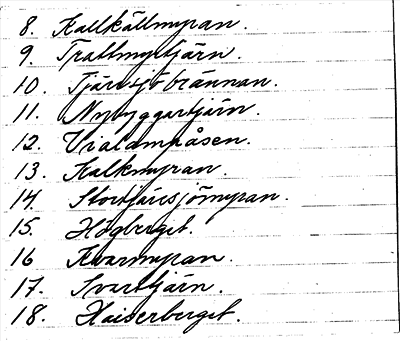 8. Kallkällmyran.
9. Trattmyrtjärn.
10. Tjärnsjöbrännan.
11. Nybyggartjärn.
12. Vialamsåsen.
13. Kalkmyran.
14. Stortjärnsjömyran.
15. Högberget.
16 Kvarnmyran.
17. Svarttjärn.
18. Kaiserberget.